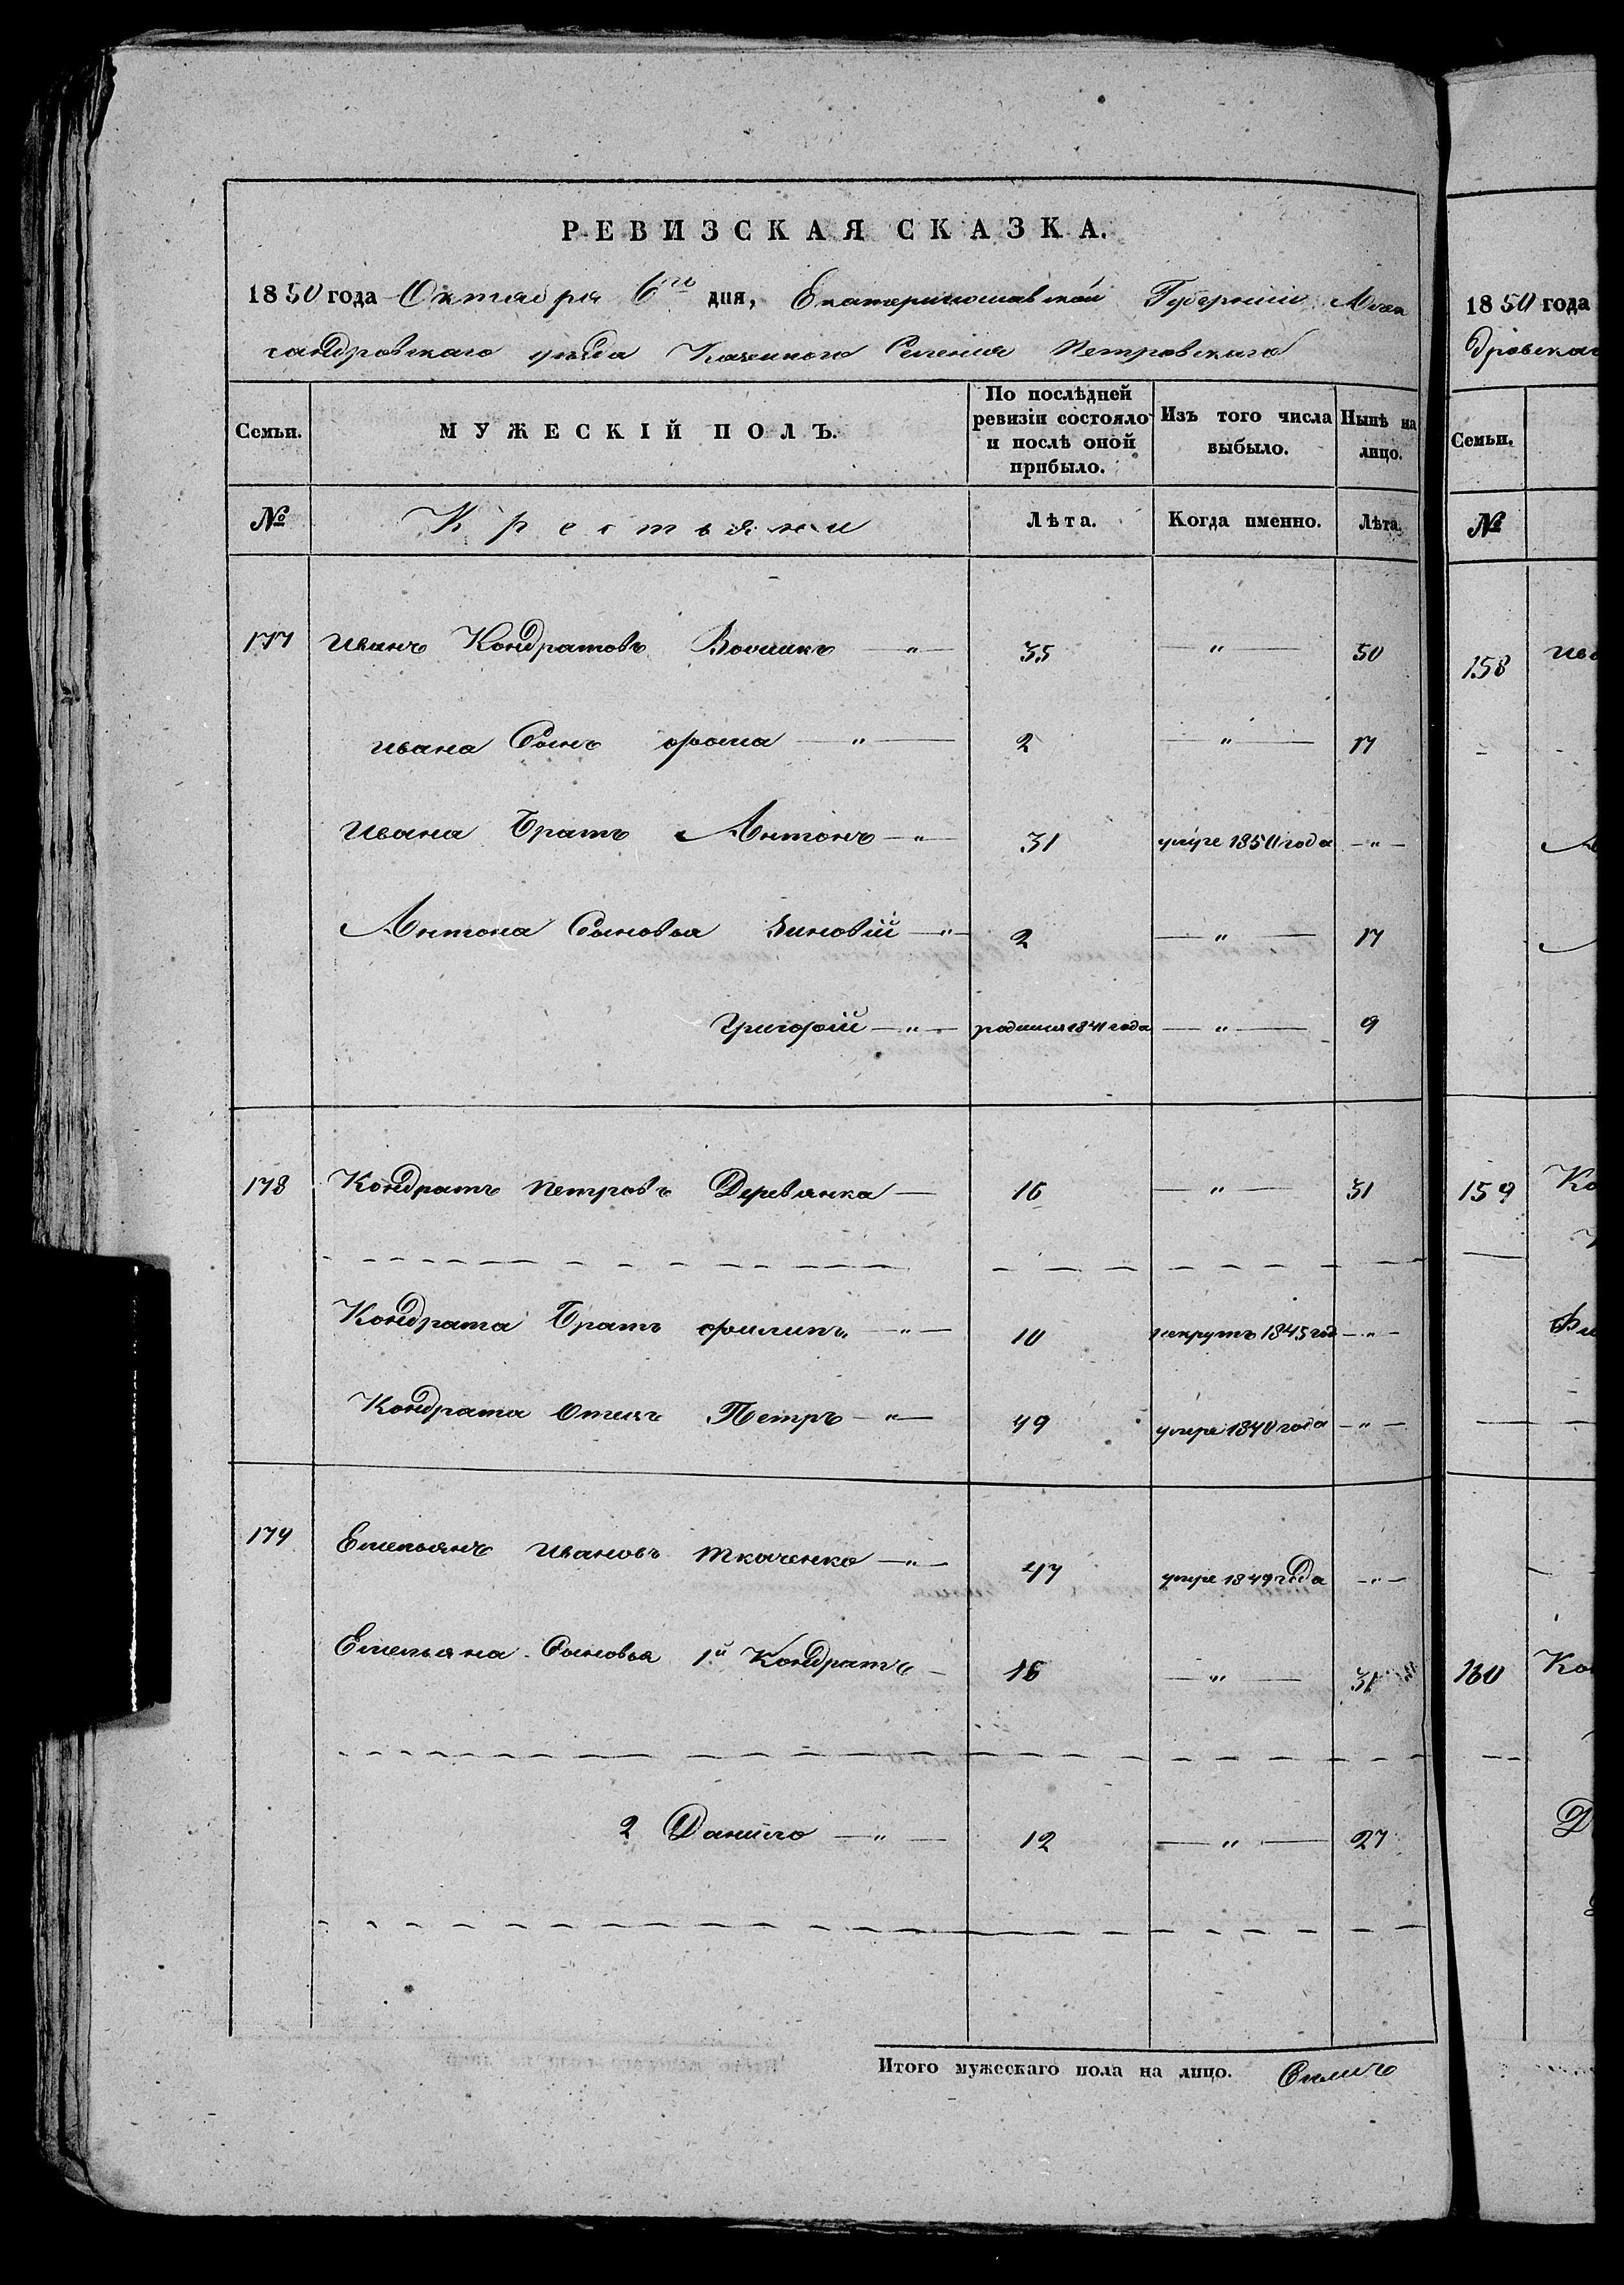 РЕВИЗСКАЯ СКАЗКА.
1850 года Октября 6го дня, Екатеринославской Губернии Алек
сандровскаго уѣзда Казенного Селения Петровскаго
Семьи. МУЖЕСКІЙ ПОЛЪ. По послѣдней ревизіи состояло и послѣ оной прибыло. Изъ того числа выбыло. Нынѣ на лицо.
№ Крестьяни Лѣта. Когда именно. Лѣта.
177 Иванъ Кондратовъ —"— 35 —"— 50
Ивана Сынъ Фома —"— 2 —"— 17
Ивана Братъ Антонъ —"— 31 умре 1850 года —"—
Антона Сыновья Зиновій —"— 2 —"— 17
Григорій —"— родился 1841 года —"— 9
178 Кондратъ Петровъ Деревянка — 16 —"— 31
Кондрата Братъ Филипъ —"— 10 рекрутъ 1845 год —"—
Кондрата Отецъ Петръ —"— 49 умре 1840 года —"—
179 Емельянъ Ивановъ Ткаченко —"— 47 умре 1849 года —"—
Емельяна Сыновья 1й Кондратъ — 16 —"— 31
2 Данило —"— 12 —"— 27
Итого мужескаго пола на лицо.
1850 года
дровскаг
Семьи.
№
158 Ива
159 Ко
Фи
160 Ко
Д